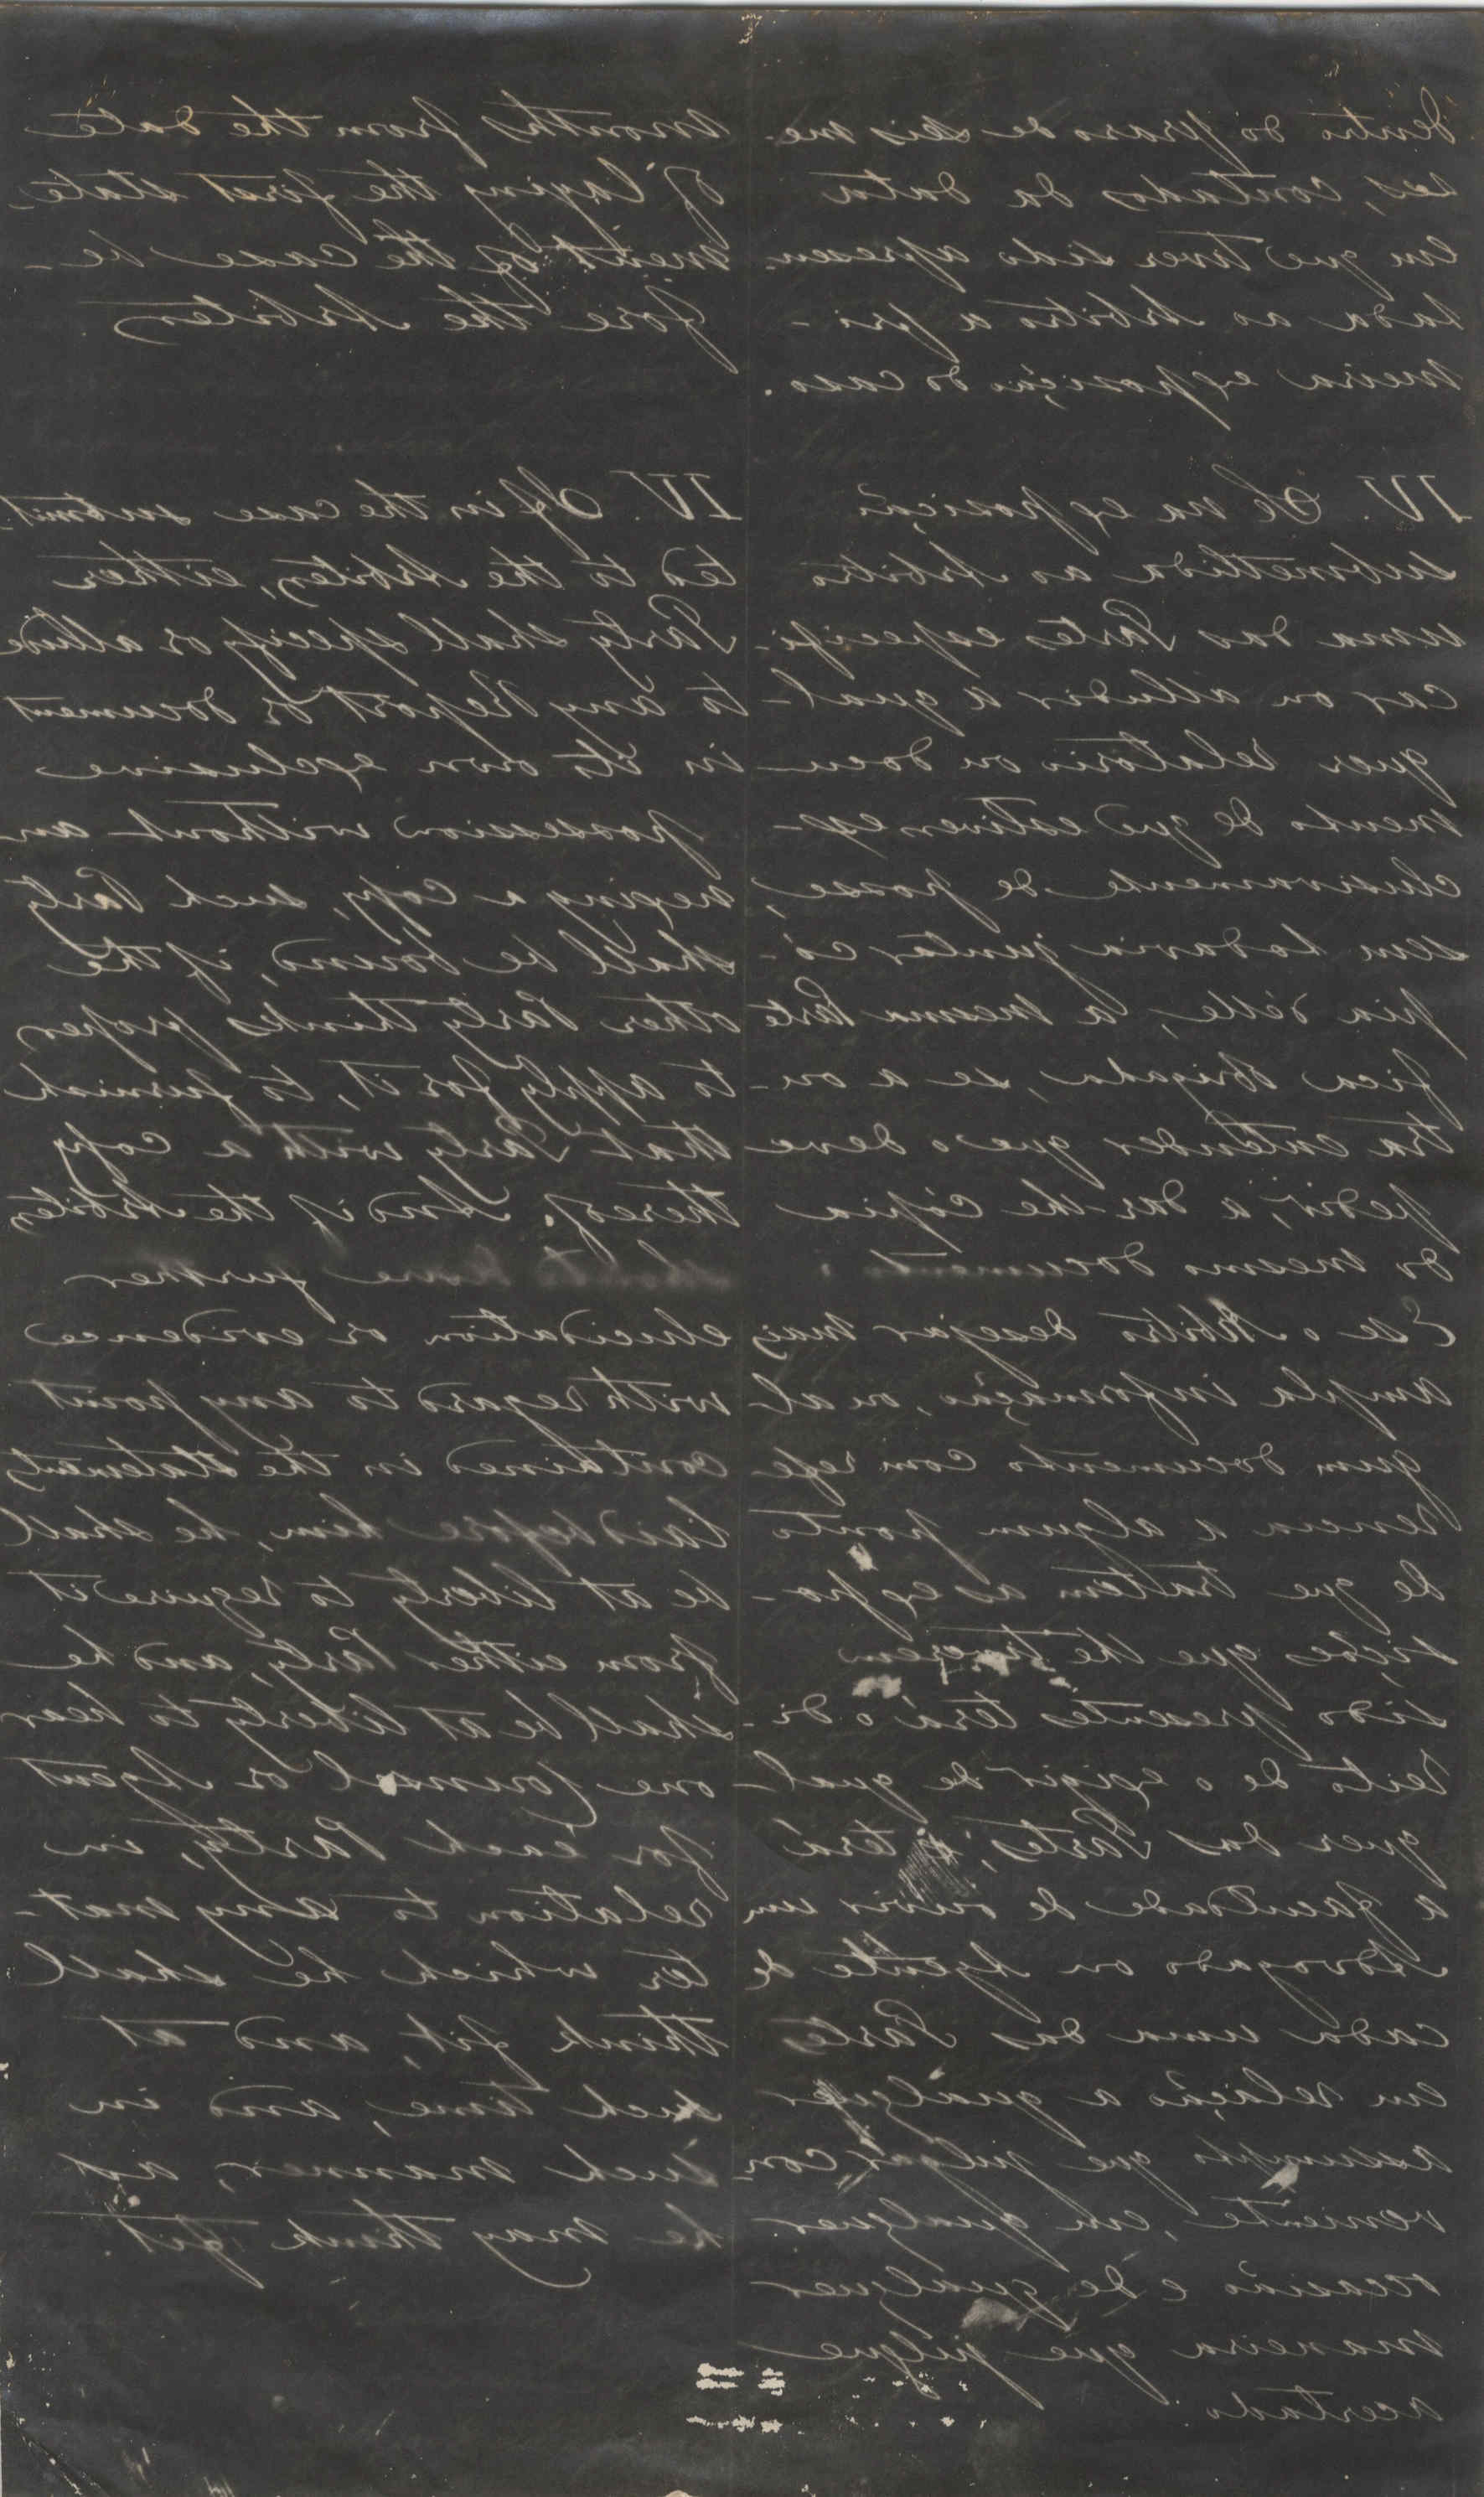 dentro do praso de seis me-
ses, contados da data
em que tiver sido apresen-
tada ao Arbitro a pri-
meira exposição do caso.
IV. Se na exposição
submettida ao Arbitro
uma das Partes especifi-
car ou alludir a qual-
quer relatorio ou docu-
mento de que estiver ex-
clusivamente de posse,
sem todavia juntar có-
pia d'elle, a mesma Parte
fica obrigada, se a ou-
tra entender que o deve
pedir, a dar-lhe cópia
do mesmo documento.
E se o Arbitro desejar mais
ampla informação, ou al
gum documento com refe
rencia a algum ponto
de que tratem as expo-
sições que lhe tiverem
sido presentes terá o di-
reito de o exigir de qual-
quer das Partes; e terá
a faculdade de ouvir um
Advogado ou Agente de
cada uma das Partes
em relação a qualquer
assumpto que julgar con-
veniente, em qualquer
occasião e de qualquer
maneira que julgue
acertado.
months from the date
of laying the first state-
ment of the case be-
fore the Arbiter.
IV. If in the case submit-
ted to the Arbiter, either
Party shall specify or allude
to any Report or document
in its own exclusive
possession without an
nexing a copy, such Party
shall be bound, if the
other Party thinks proper
to apply for it, to furnish
that Party with a copy
thereof. And if the Arbiter
should desire further
elucidation or evidence
with regard to any point
contained in the statements
laid before him, he shall
be at liberty to require it
from either Party, and he
shall be at liberty to hear
one Counsel or Agent
for each Party, in
relation to any mat-
ter which he shall
think fit, and at
such time, and in
such manner, as
he may think fit.